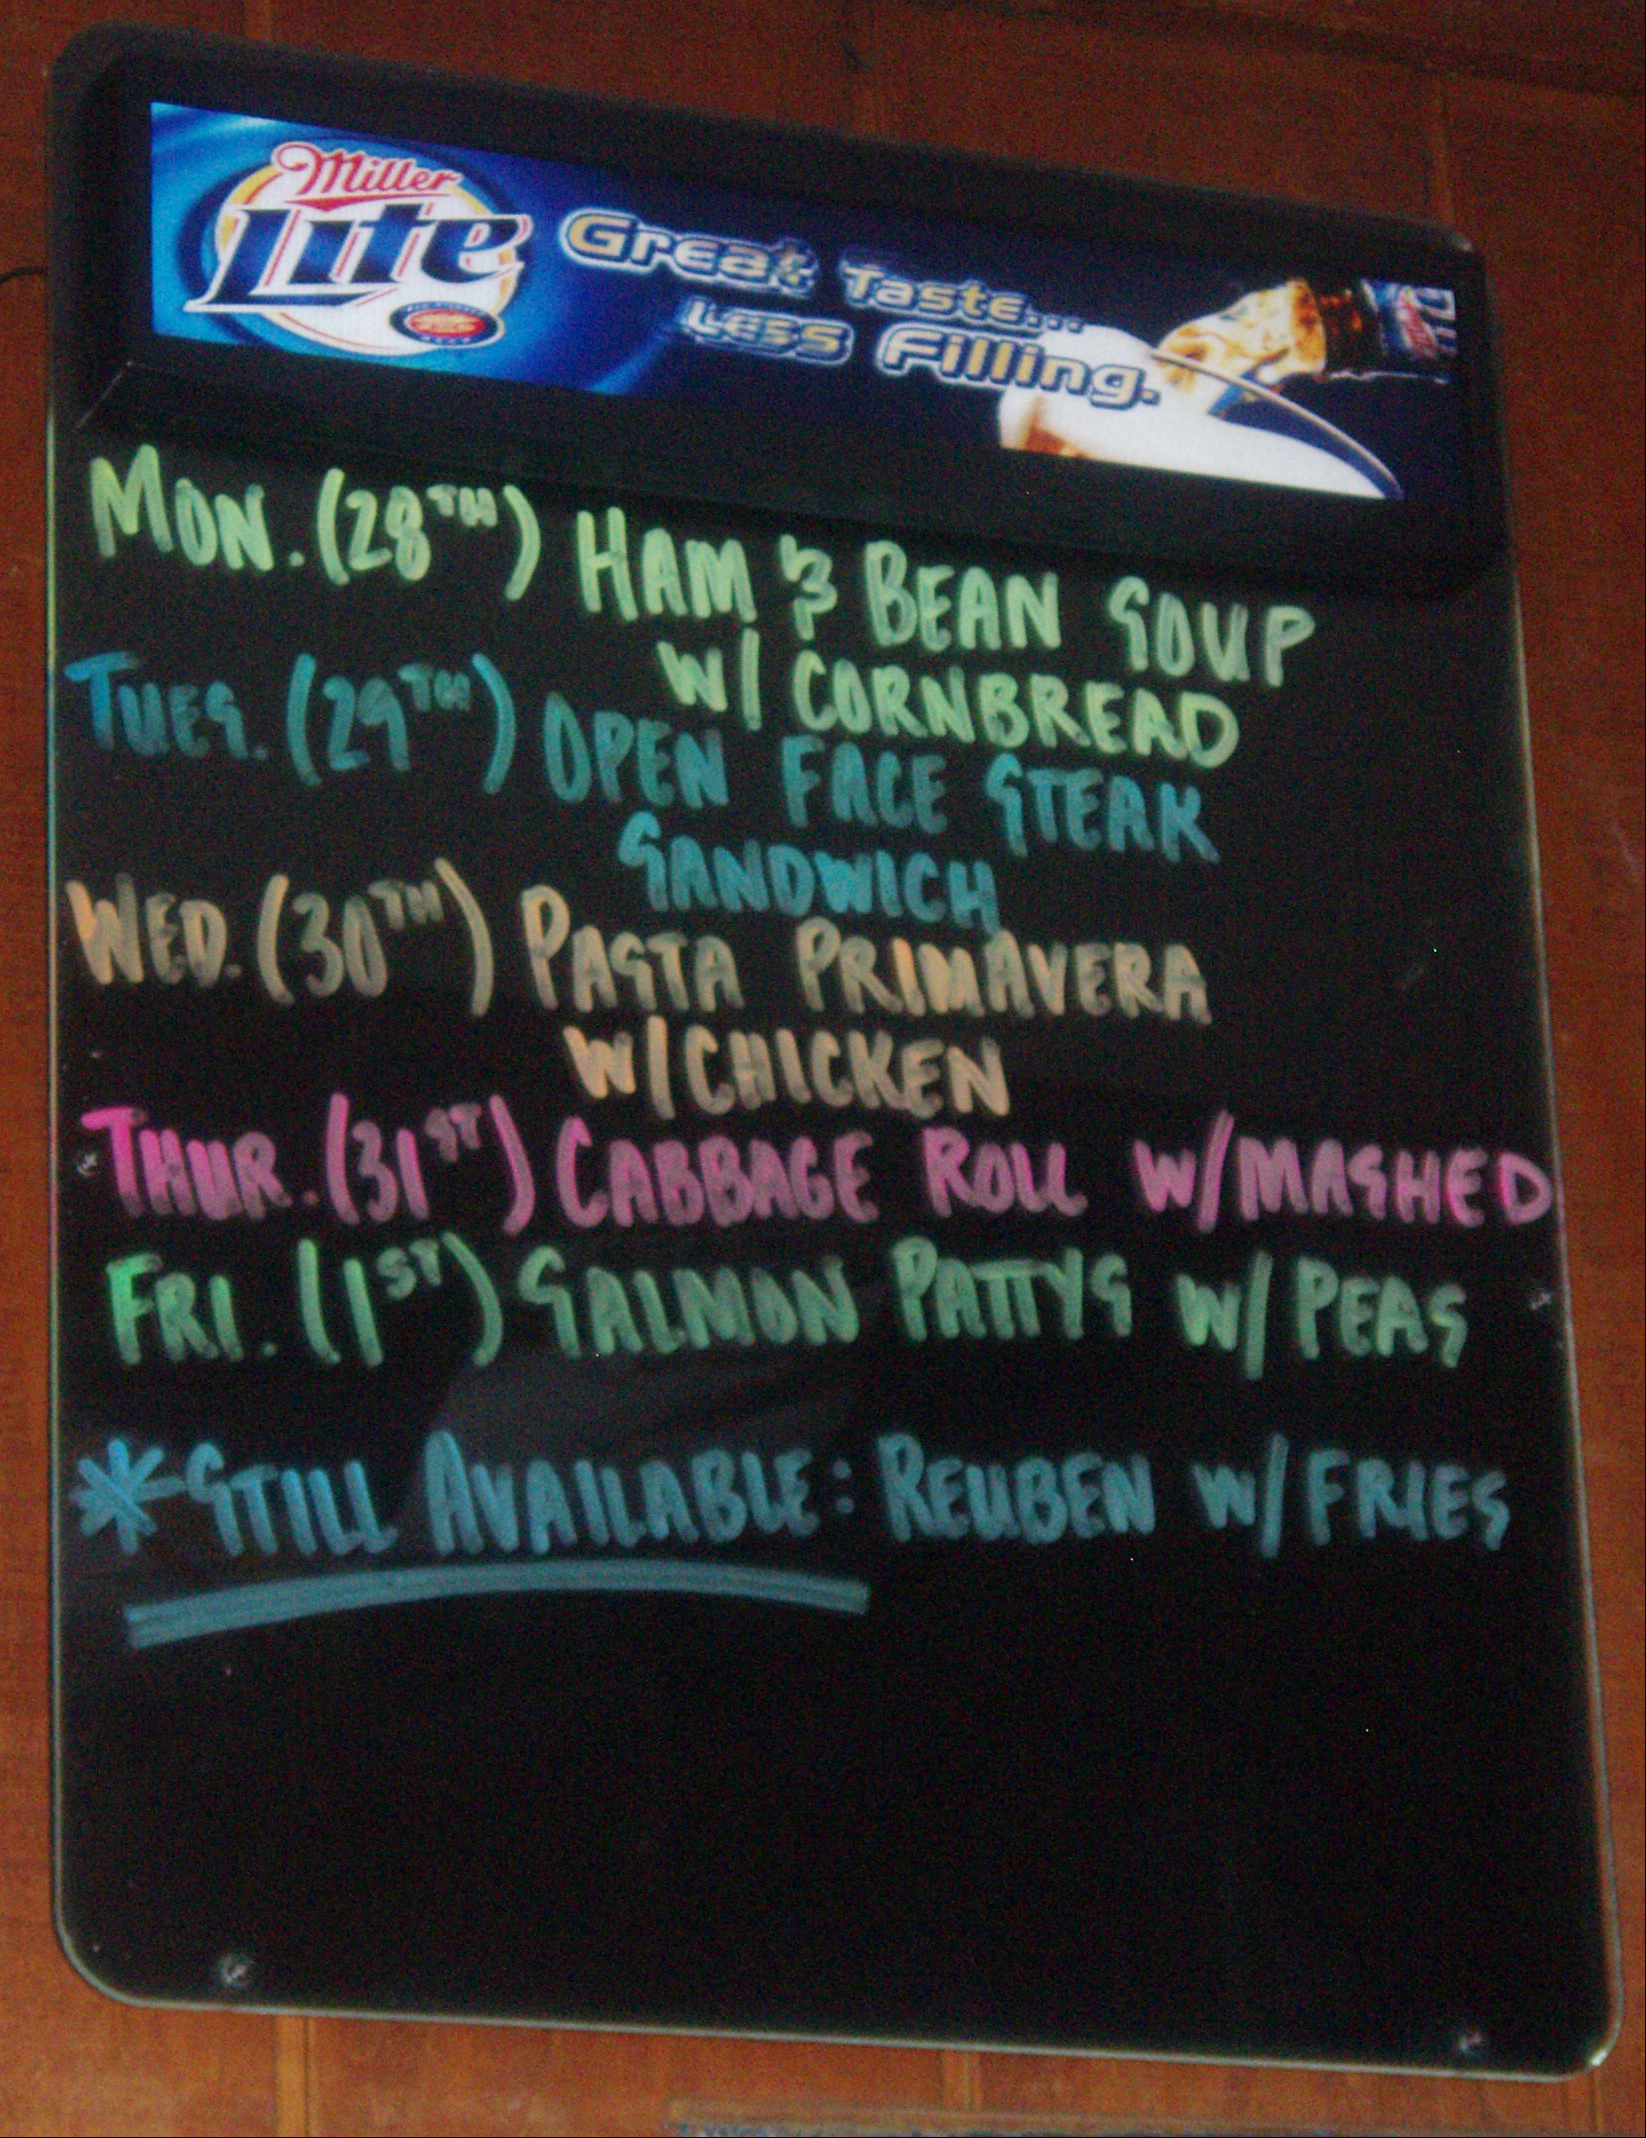 Miller
Lite
Great Taste...
Less Filling.
MON. (28TH) HAM & BEAN SOUP
W/ CORNBREAD
TUES. (29TH) OPEN FACE STEAK
SANDWICH
WED. (30TH) PASTA PRIMAVERA
W/CHICKEN
THUR. (31ST) CABBAGE ROLL W/MASHED
FRI. (1ST) SALMON PATTYS W/ PEAS
*STILL AVAILABLE: REUBEN W/ FRIES